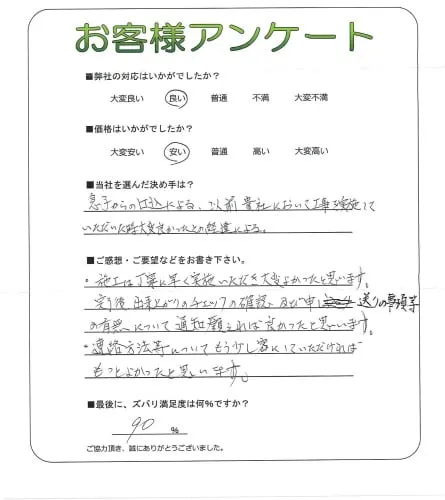 お客様アンケート
■弊社の対応はいかがでしたか？
大変良い 良い 普通 不満 大変不満
■価格はいかがでしたか？
大変安い 安い 普通 高い 大変高い
■当社を選んだ決め手は？
息子からの口込による、以前貴社において工事実施して
いただいた時大変良かったとの経達による。
■ご感想・ご要望などをお書き下さい。
・施工は丁寧に早く実施いただき大変よかったと思います。
完了後 出来上がりのチェックの確認、及び申し送りの事項等
の有無について通知願えれば良かったと思います。
・連絡方法等についてもう少し密にしていただければ
もっとよかったと思います。
■最後に、ズバリ満足度は何％ですか？
90 ％
ご協力頂き、誠にありがとうございました。